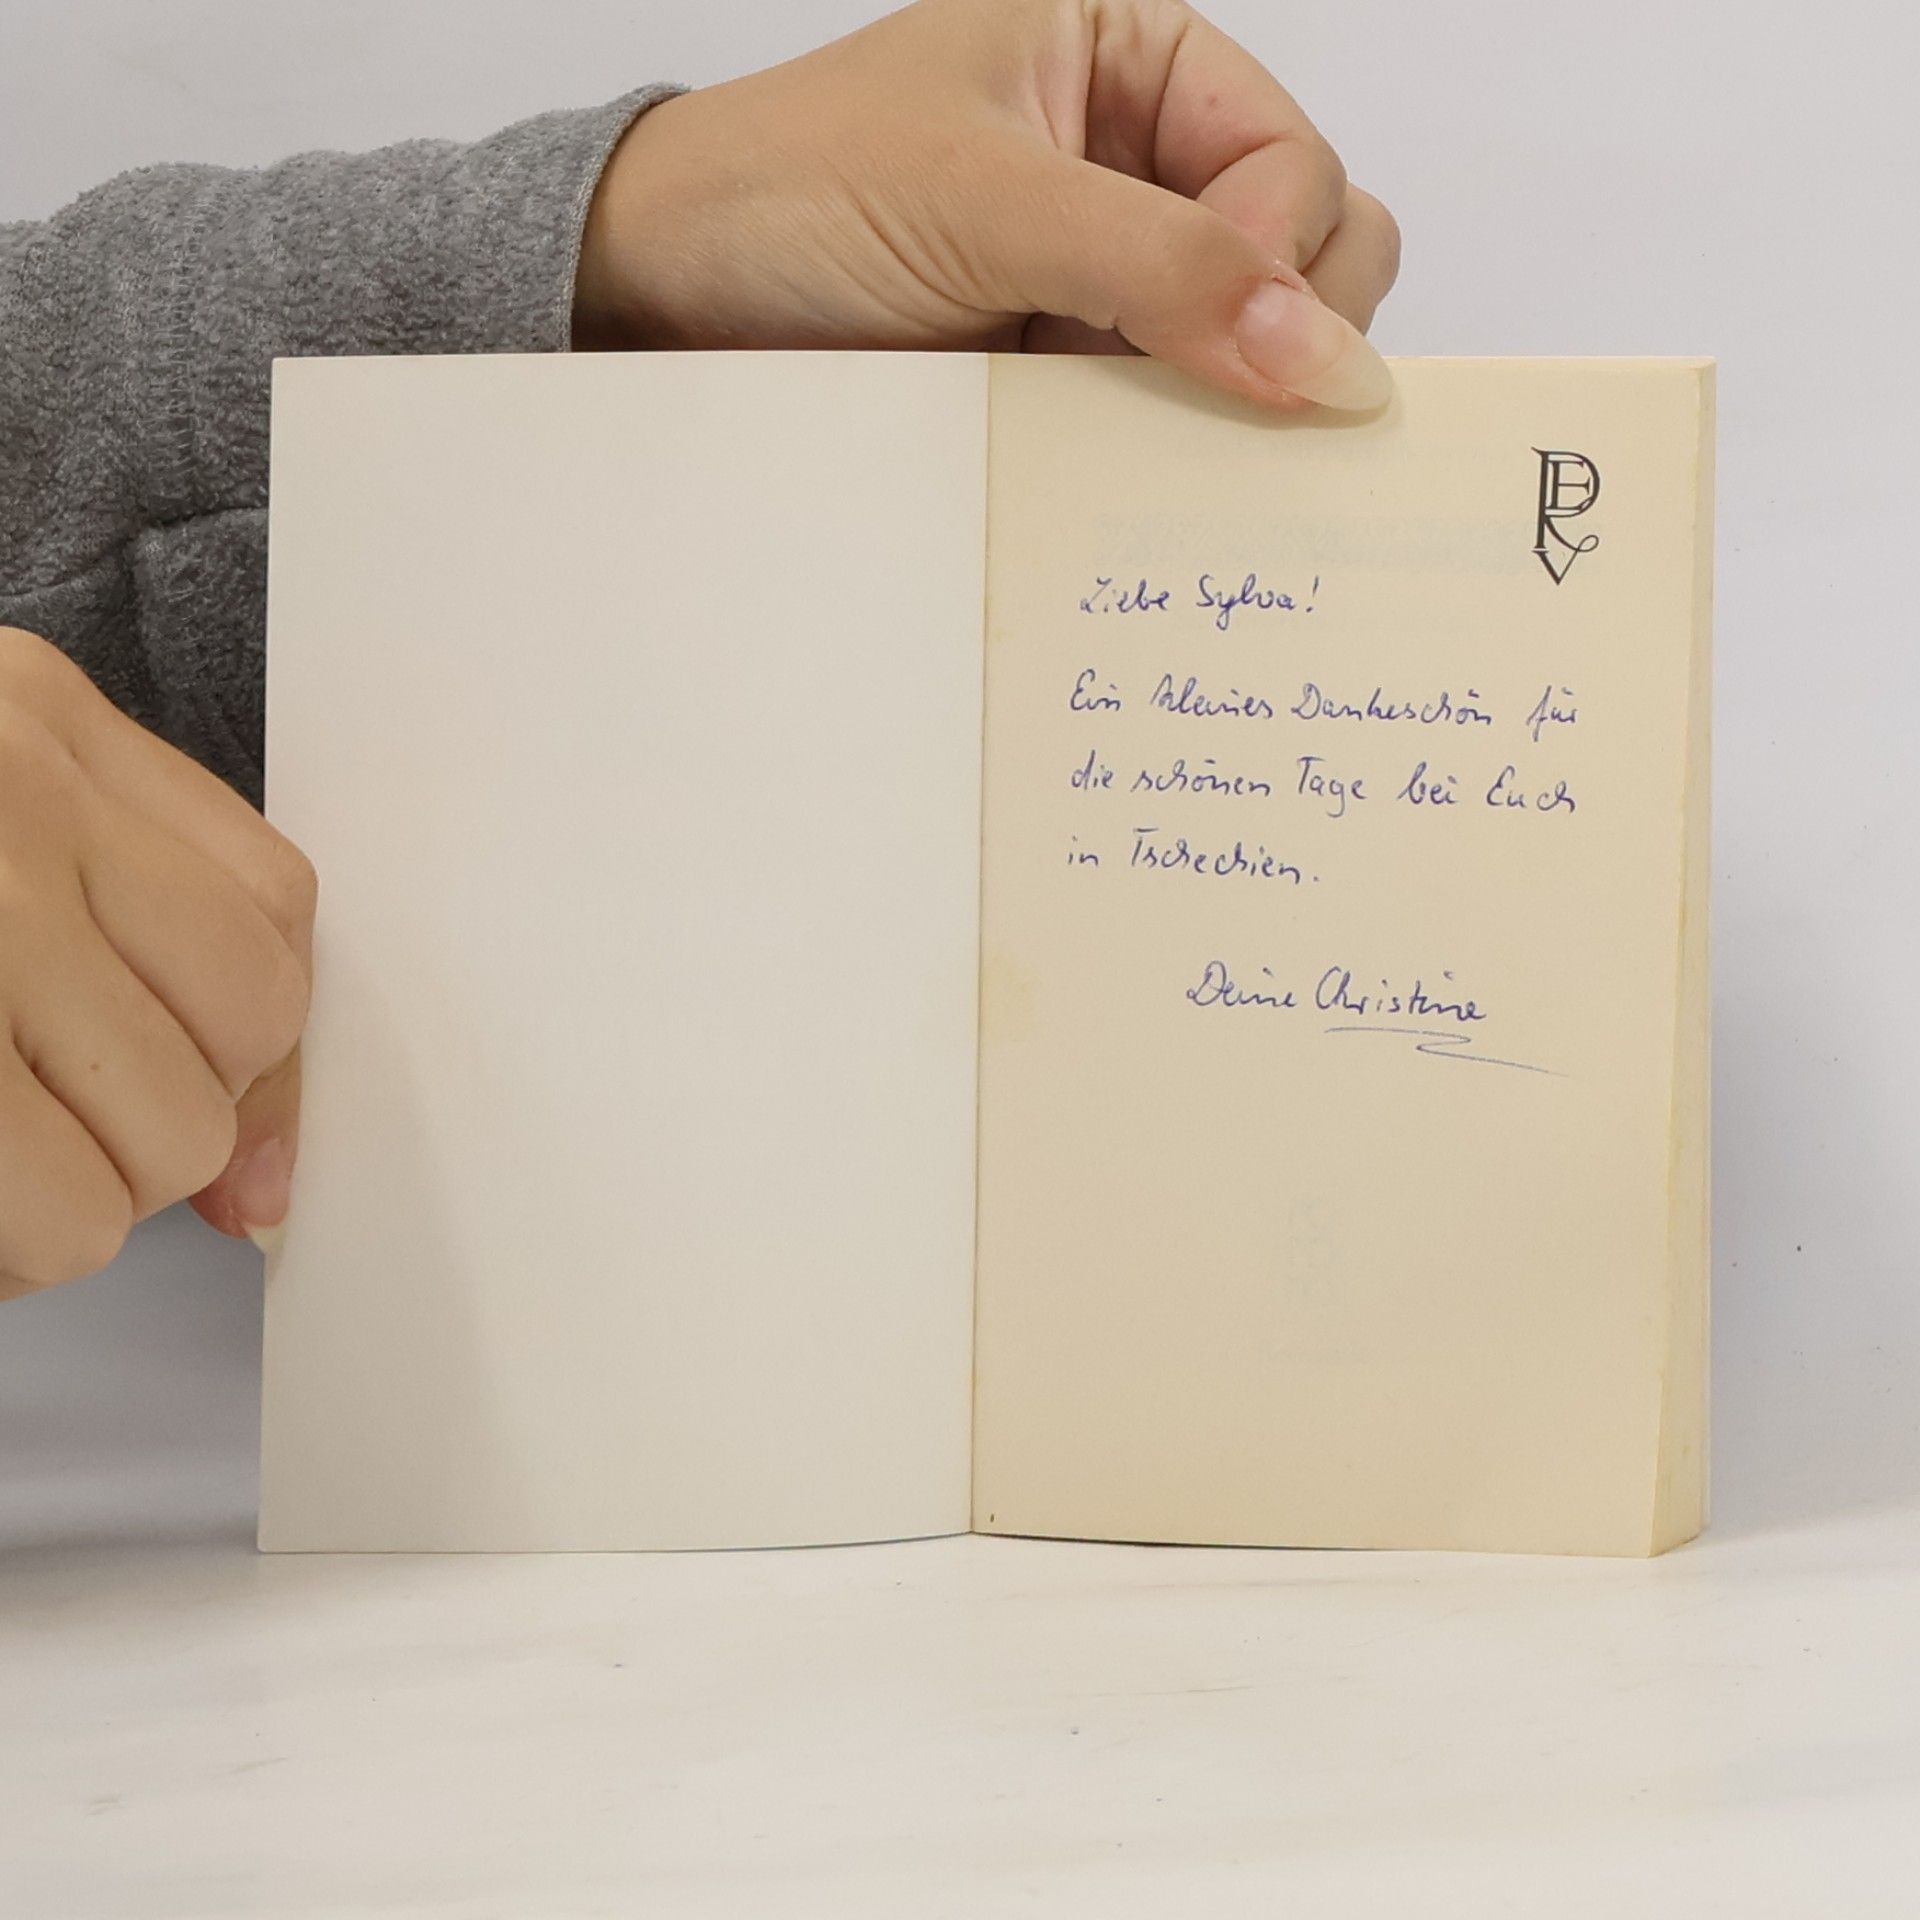 PERV
Liebe Sylva!
Ein kleines Dankeschön für
die schönen Tage bei Euch
in Tschechien.
Deine Christine